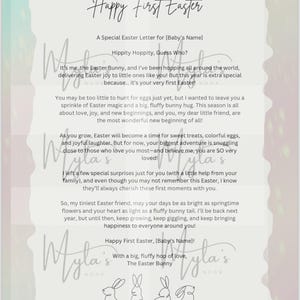 Happy First Easter
A Special Easter Letter for [Baby's Name]
Hippity Hoppity, Guess Who?
It's me, the Easter Bunny, and I've been hopping all around the world,
delivering Easter joy to little ones like you! But this year is extra special
because... it's your very first Easter!
You may be too little to hunt for eggs just yet, but I wanted to leave you a
sprinkle of Easter magic and a big, fluffy bunny hug. This season is all
about love, joy, and new beginnings, and you, my dear little friend, are
the most wonderful new beginning of all!
As you grow, Easter will become a time for sweet treats, colorful eggs,
and joyful laughter. But for now, your biggest adventure is snuggling
close to those who love you most—and believe me, you are SO very
loved!
I left a few special surprises just for you (with a little help from your
family), and even though you may not remember this Easter, I know
they'll always cherish these first moments with you.
So, my tiniest Easter friend, may your days be as bright as springtime
flowers and your heart as light as a fluffy bunny tail. I'll be back next
year, but until then, keep growing, keep giggling, and keep bringing
happiness to everyone around you!
Happy First Easter, [Baby's Name]!
With a big, fluffy hop of love,
The Easter Bunny
Myla's
Myla's
Myla's
Myla's
Myla's
Myla's